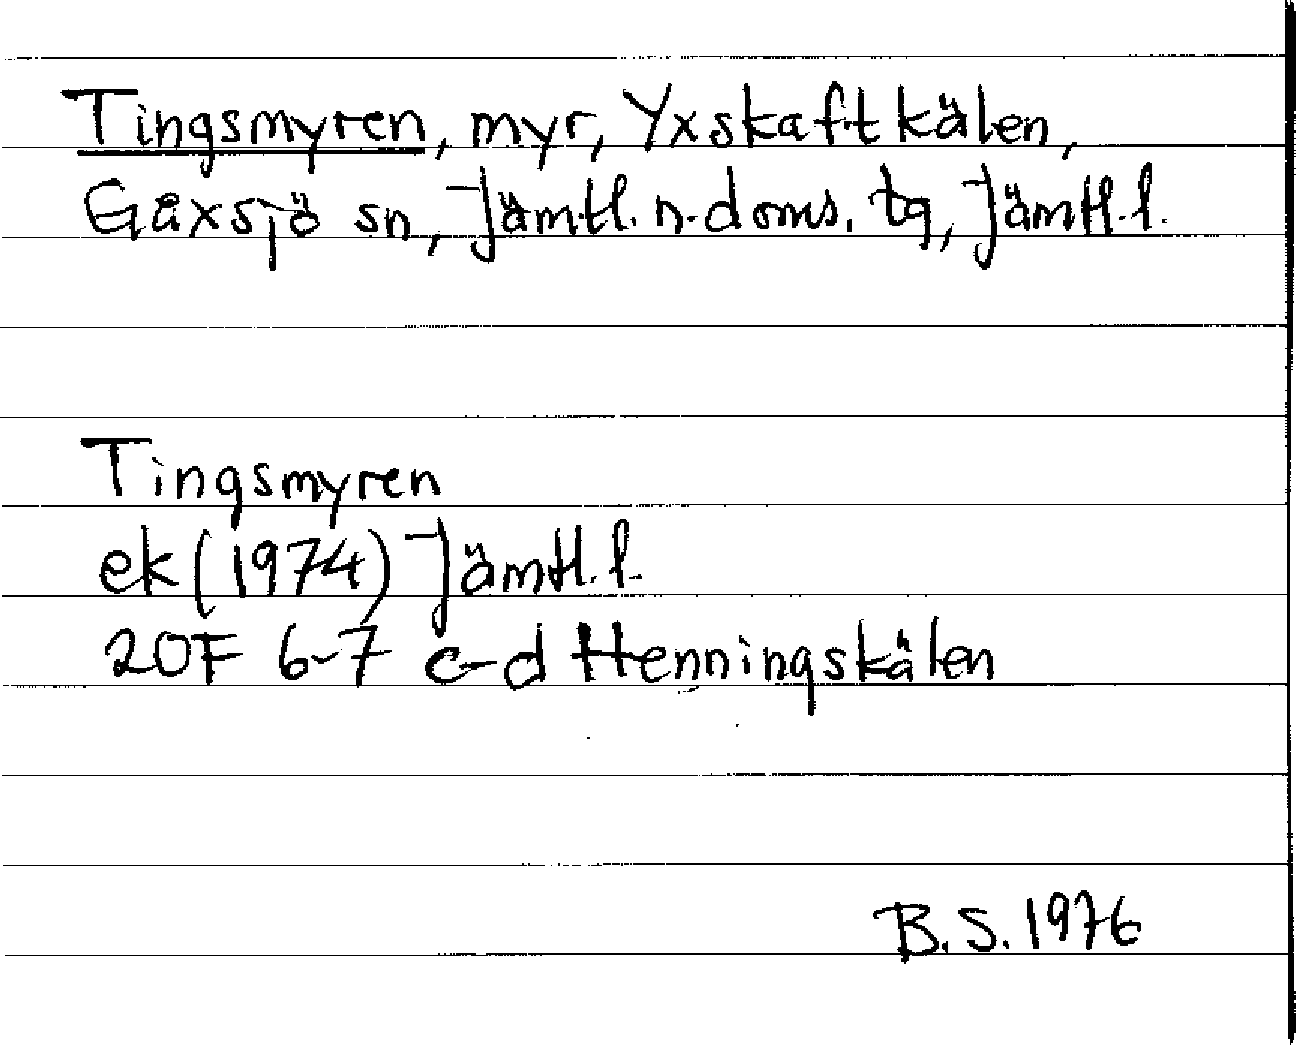 Tingsmyren, myr, Yxskaftkälen,
Gåxsjö sn, Jämtl. n. doms. tg, Jämtl. l.
Tingsmyren
ek (1974) Jämtl. l.
20F 6-7 c-d Henningskälen
B.S. 1976